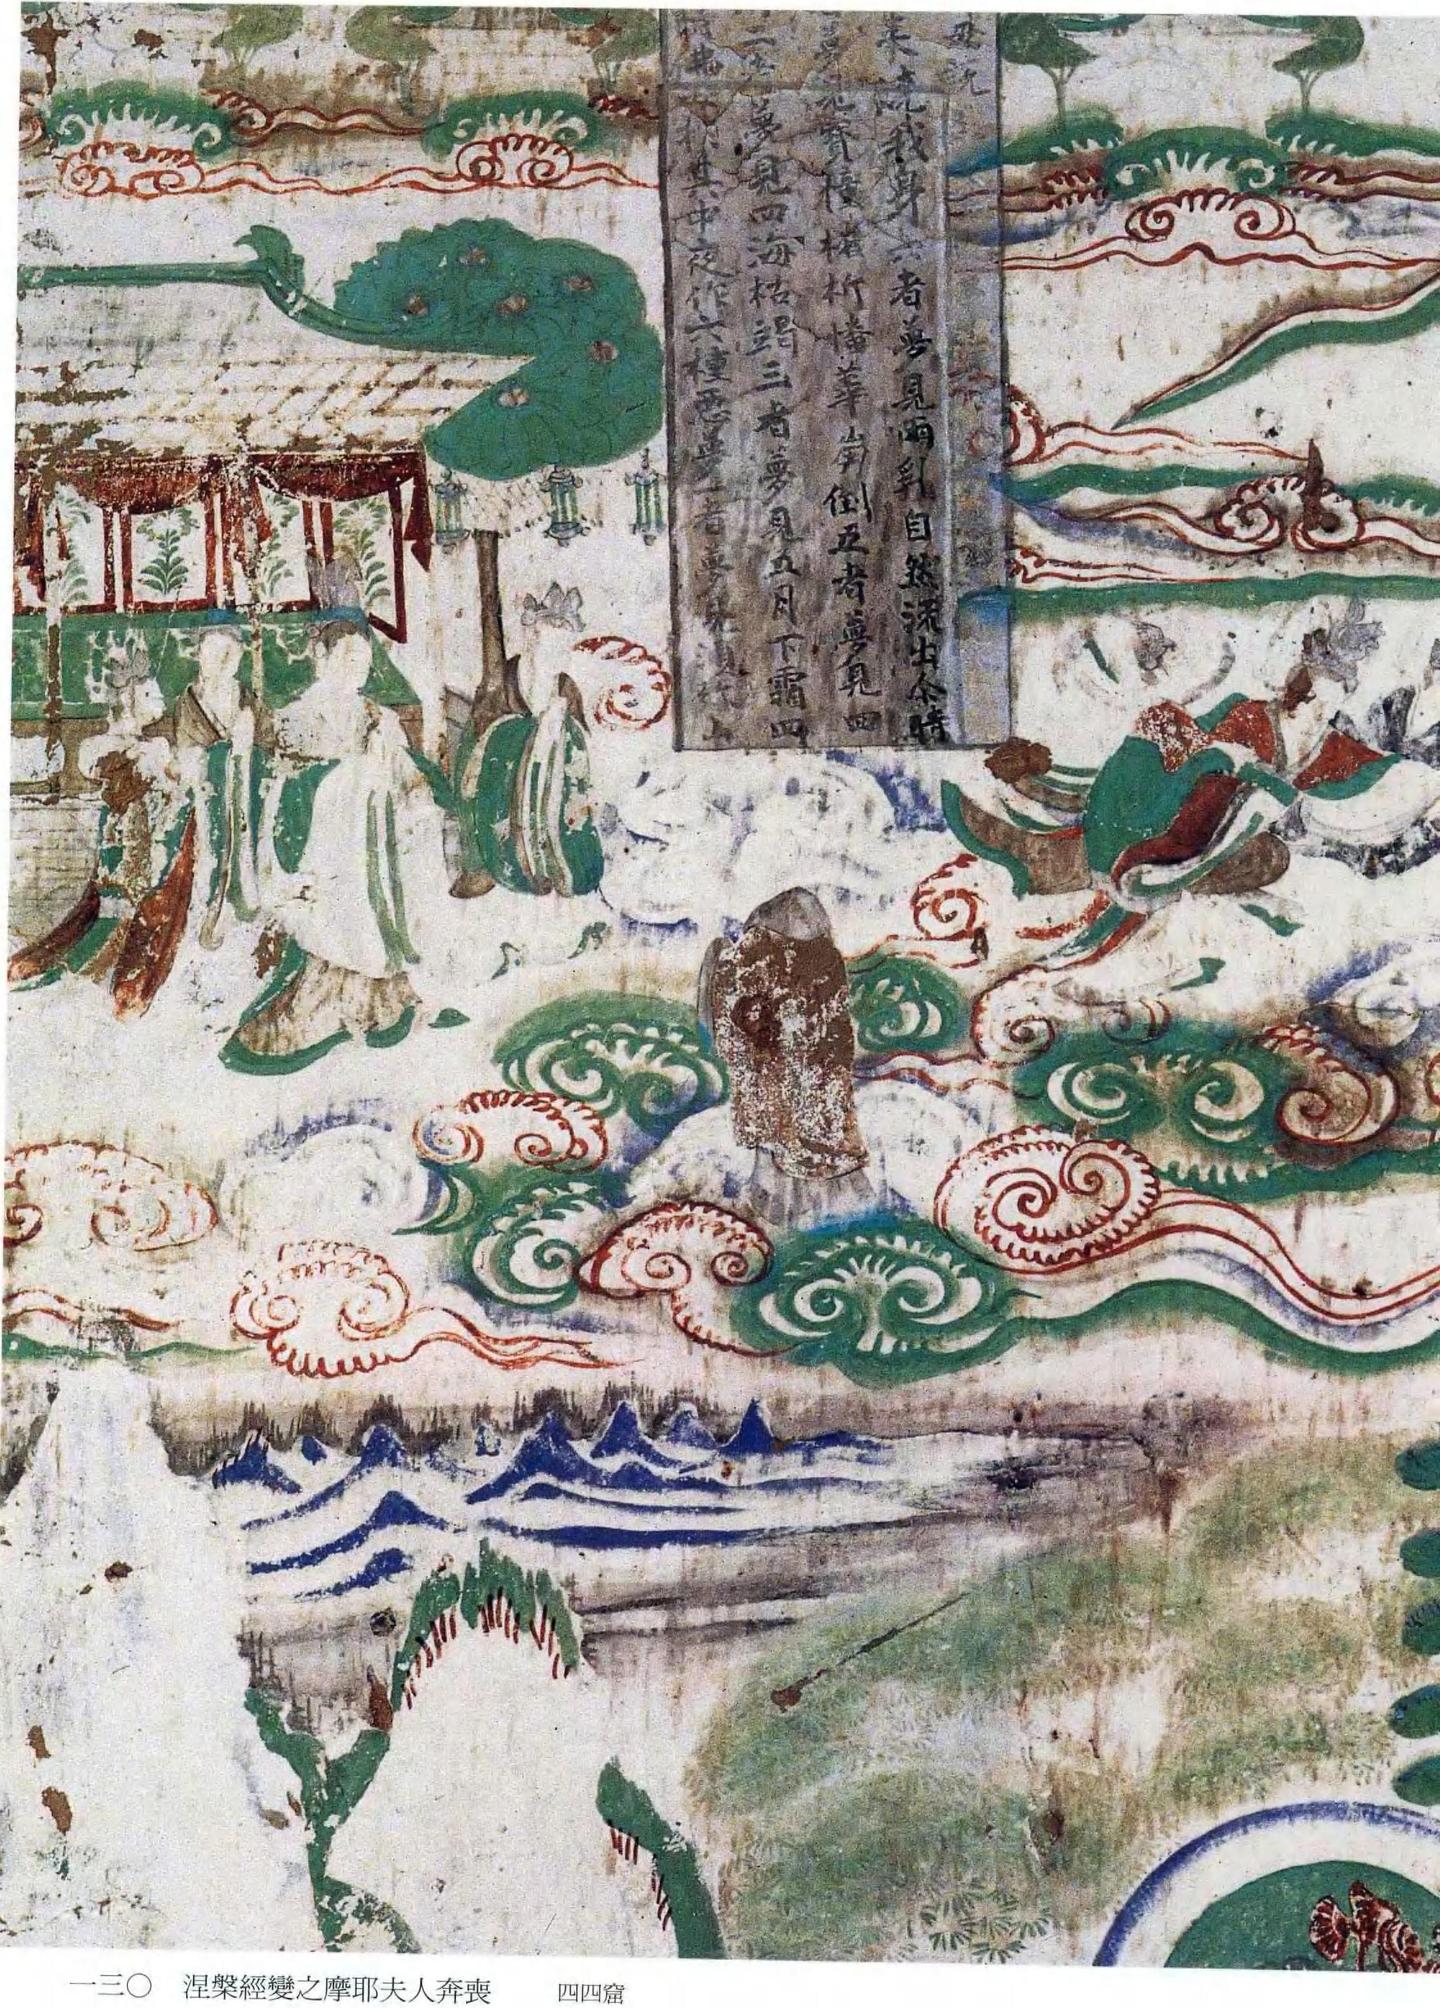 其中夜作六種惡夢一者夢見須弥山
夢見四海枯竭三者夢見五月下霜四
寶幢摧折幡華崩倒五者夢見四
來吮我身六者夢見兩乳自然流出尒時
一三〇 涅槃經變之摩耶夫人奔喪 四四窟